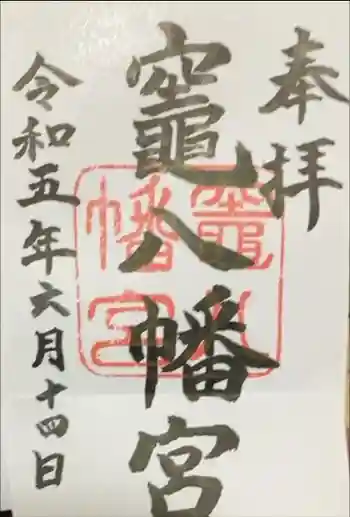 奉拝
竈八幡宮
竈八幡宮
令和五年六月十四日